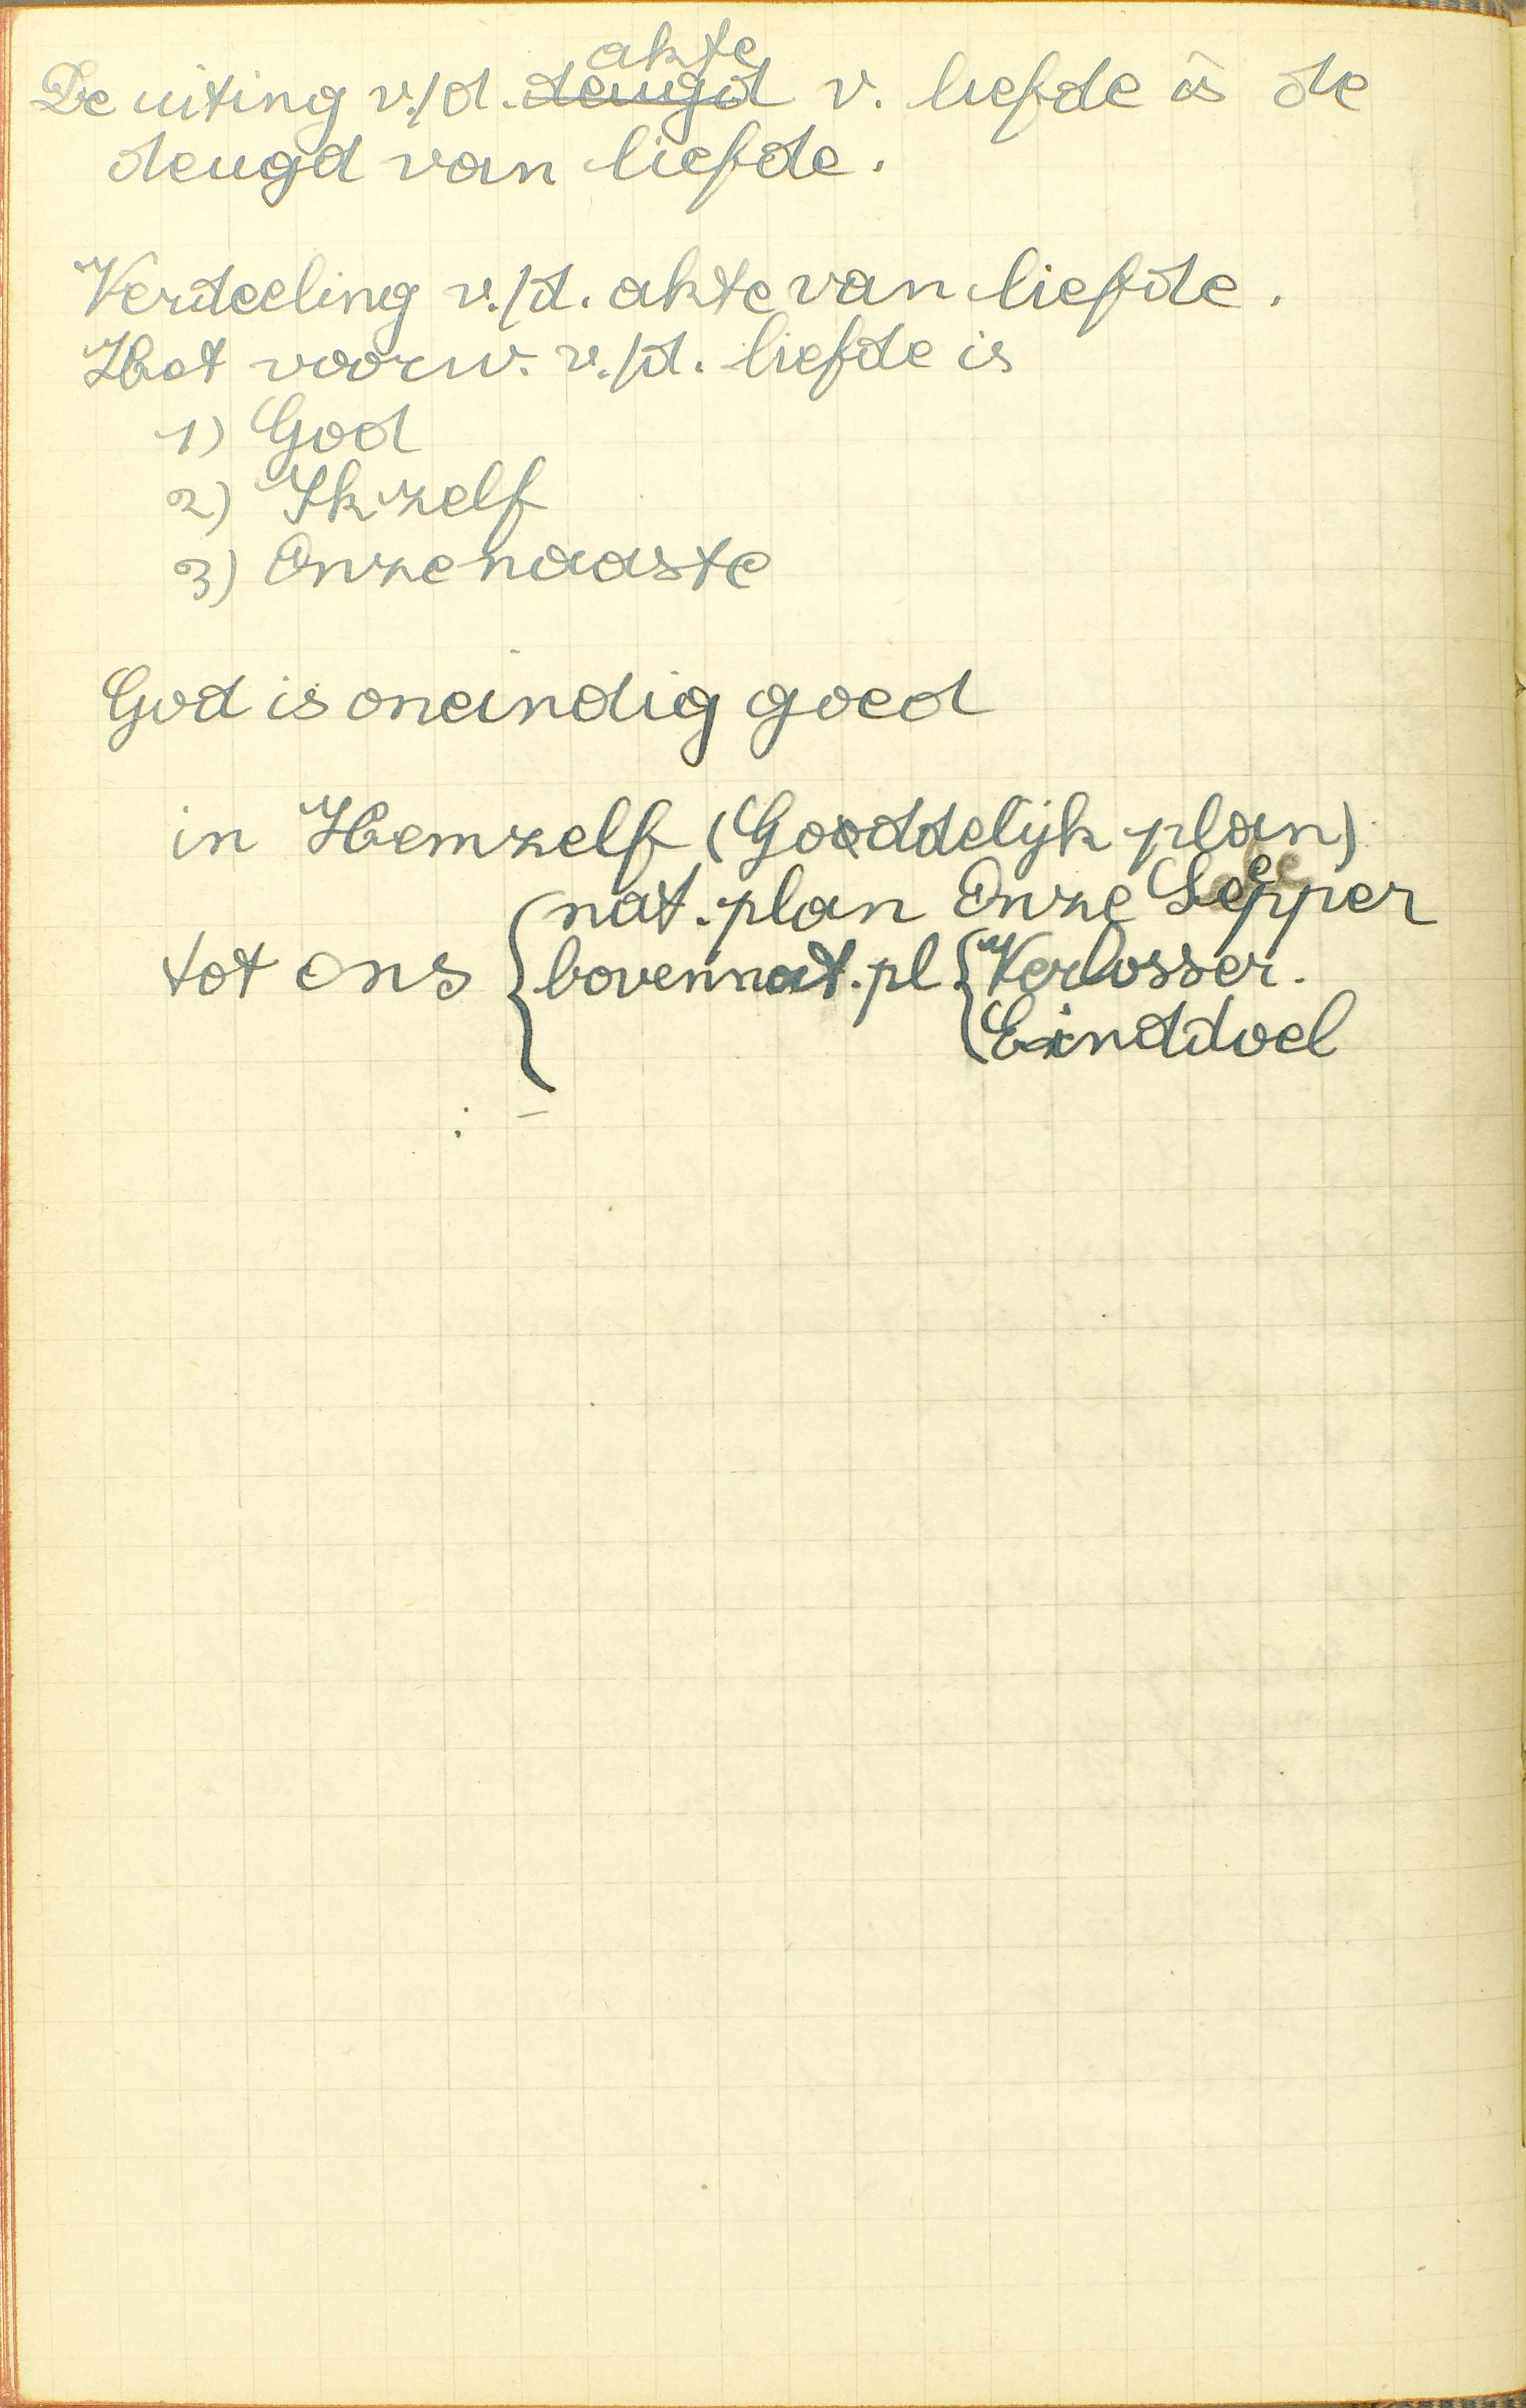 De uiting v./d. deugd akte v. liefde is de
deugd van liefde.
Verdeeling v./d. akte van liefde.
Het voorw. v./d. liefde is
1) God
2) Ikzelf
3) Onze naaste
God is oneindig goed
in Hemzelf (Goddelijk plan)
nat. plan Onze Schepper
tot ons { bovennat. pl. { Verlosser.
Einddoel